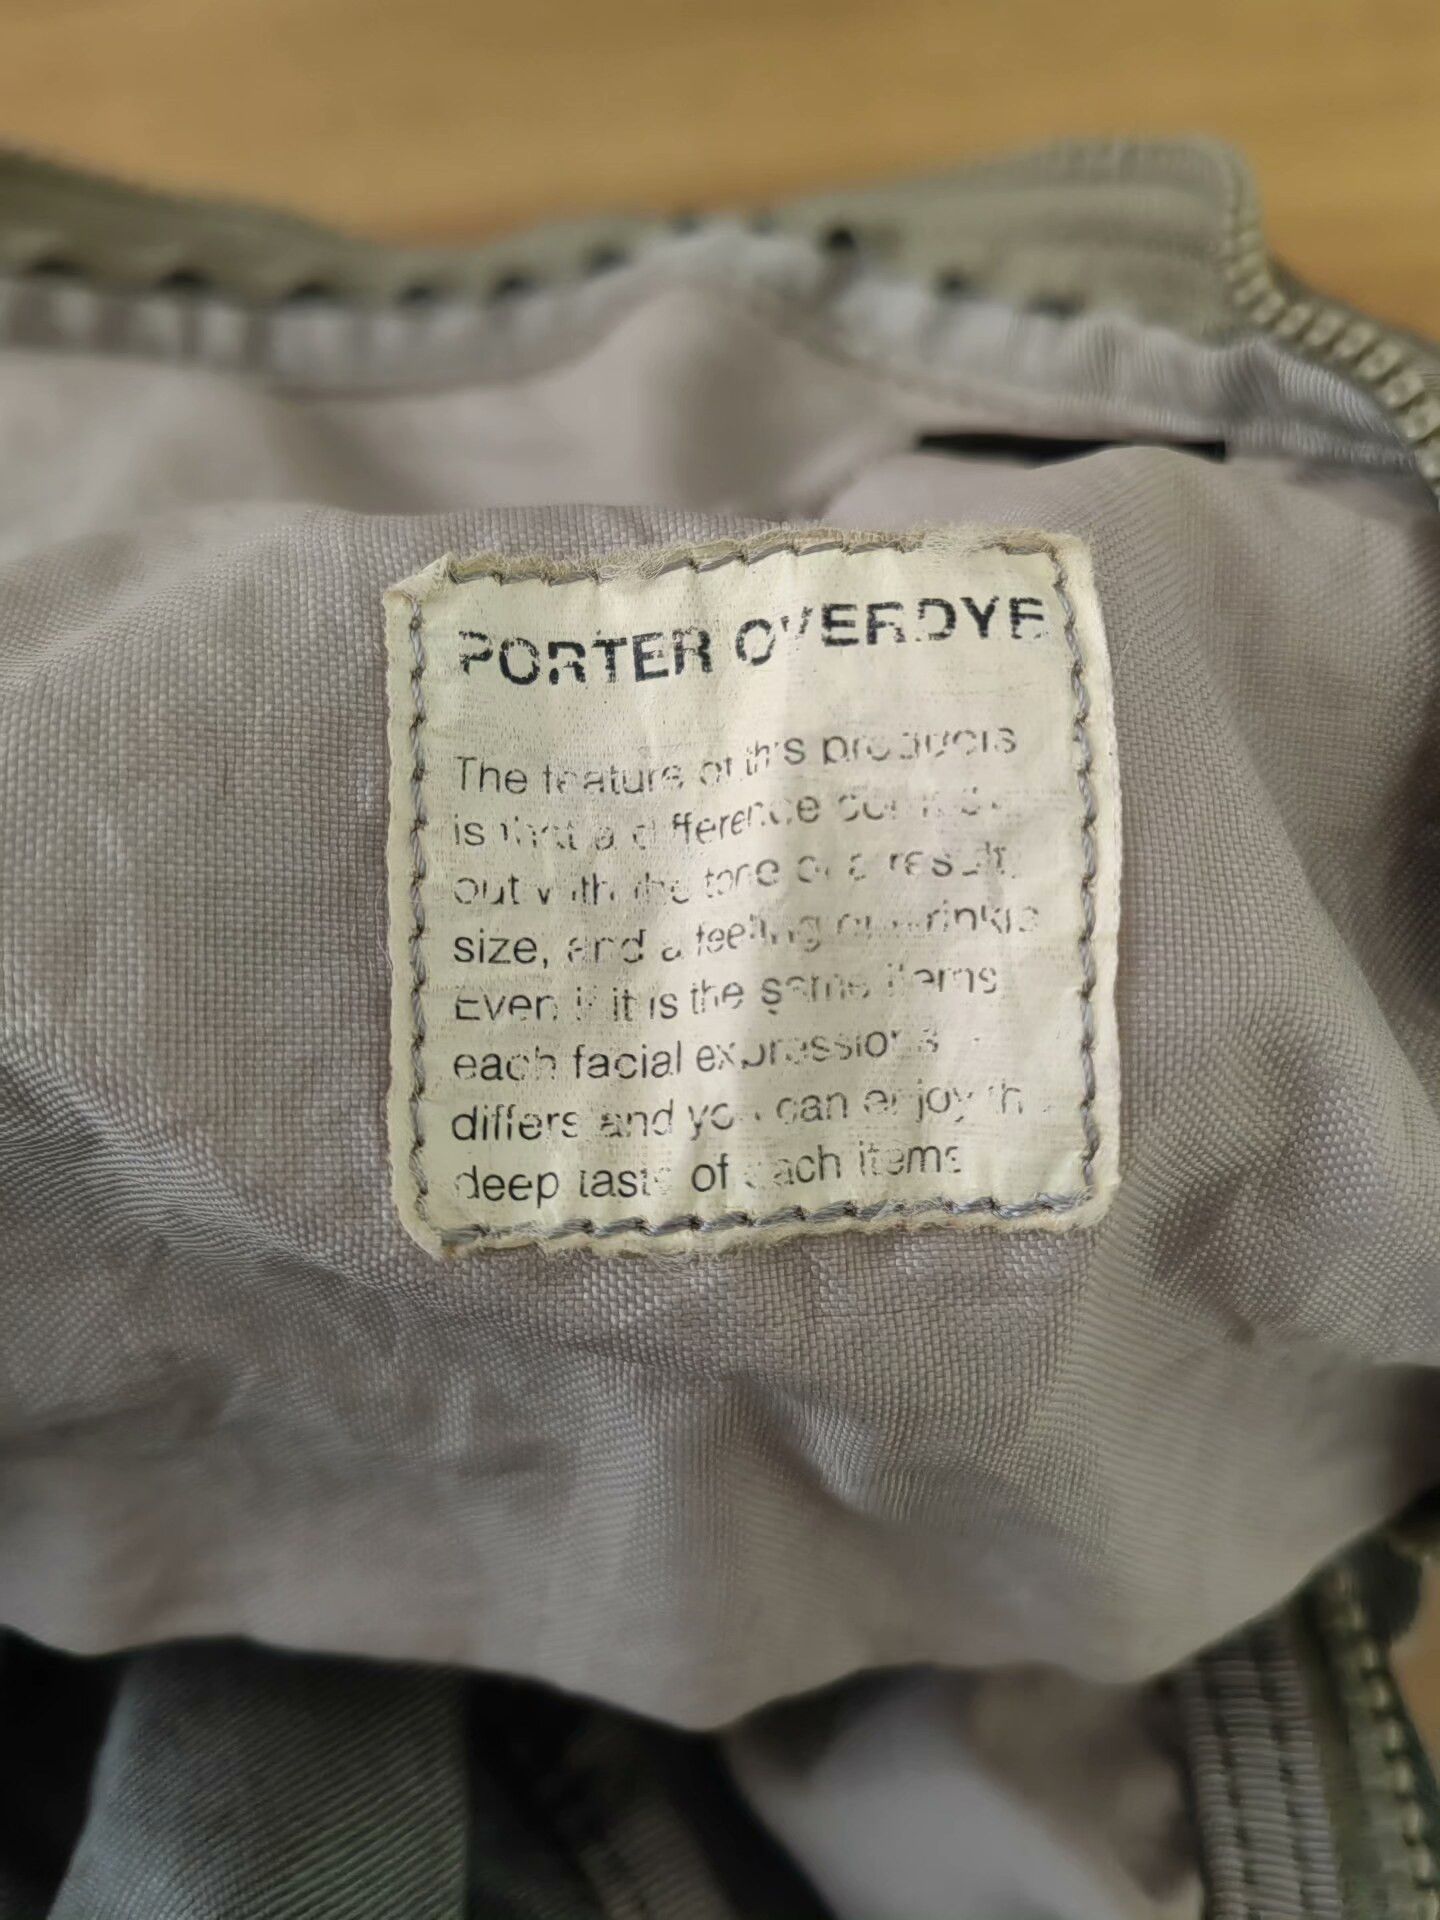 PORTER OVERDYE
The feature of this products
is that a difference comes
out with the tone of a result,
size, and a feeling of wrinkle
Even if it is the same items
each facial expressions
differs and you can enjoy the
deep taste of each items